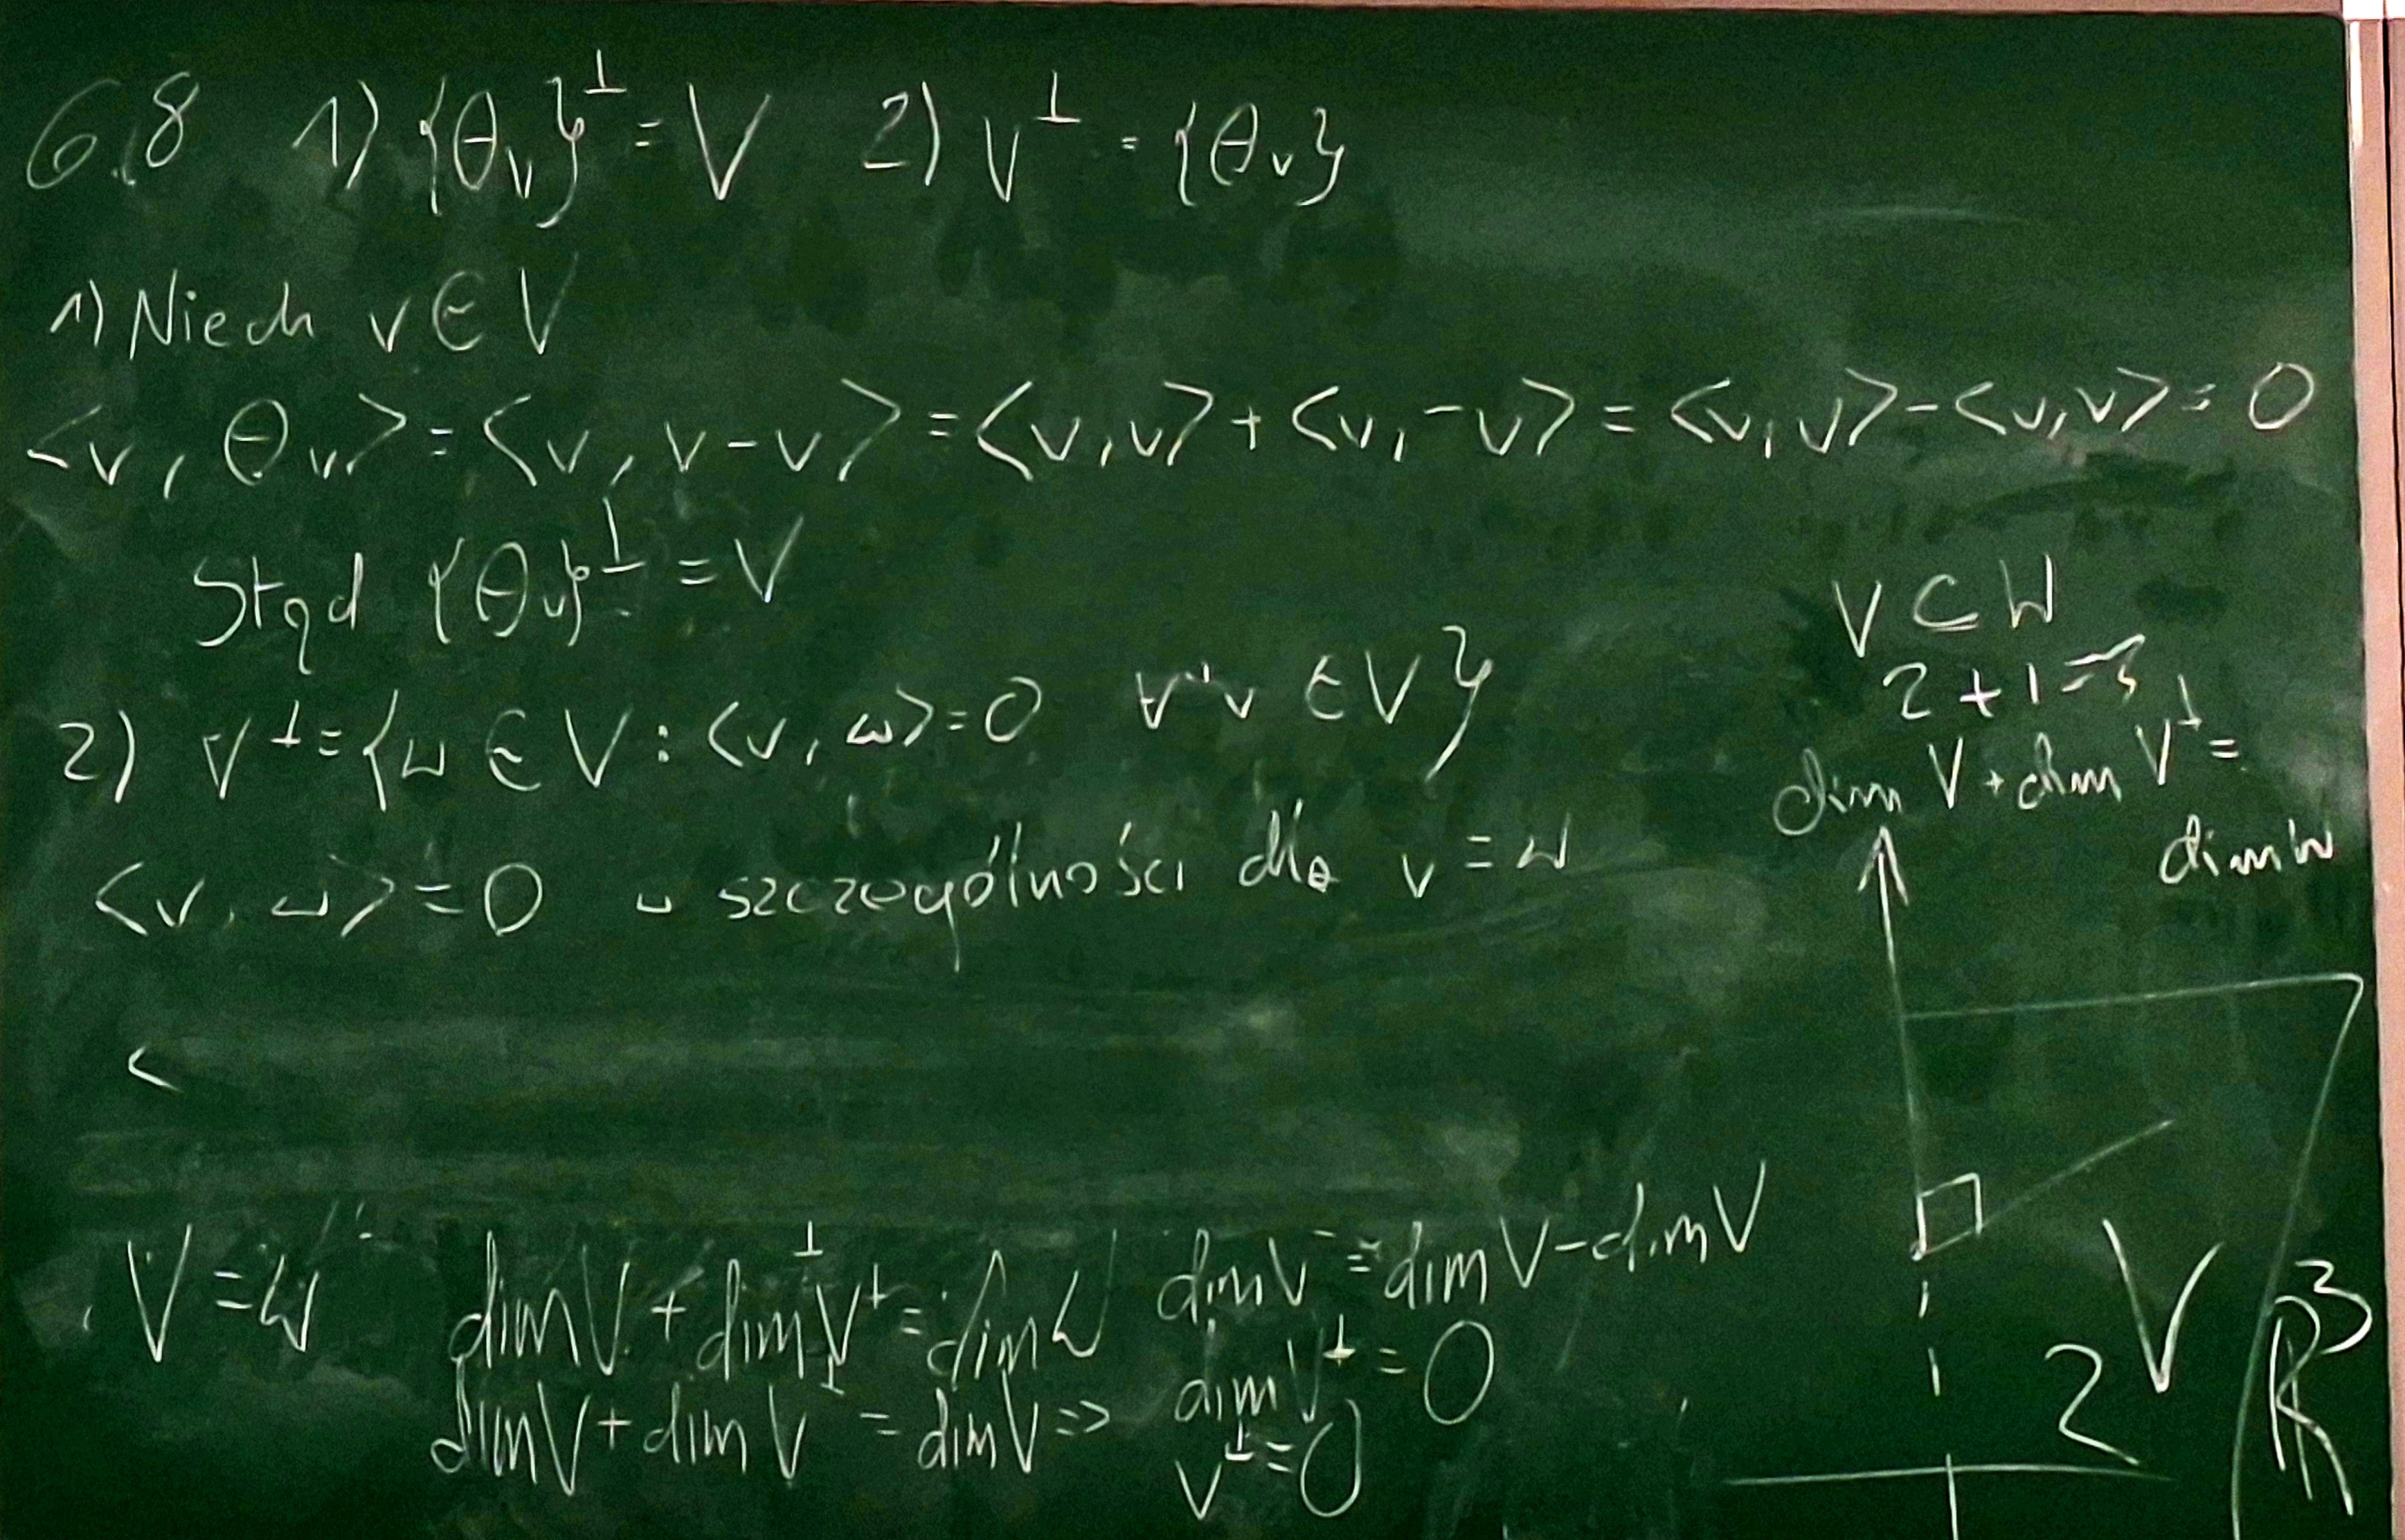 6.8 1) {θ_v}^⊥ = V 2) V^⊥ = {θ_v}
1) Niech v ∈ V
<v, θ_v> = <v, v-v> = <v,v> + <v,-v> = <v,v> - <v,v> = 0
Stąd {θ_v}^⊥ = V
2) V^⊥ = {w ∈ V : <v, w> = 0 ∀ v ∈ V}
<v, w> = 0 w szczególności dla v = w
<
V ⊂ W
2 + 1 = 3
dim V + dim V^⊥ =
dim W
V = W dim V + dim V^⊥ = dim W dim V^⊥ = dim V - dim V
dim V + dim V^⊥ = dim V => dim V^⊥ = 0
V^⊥ = 0
V
2
R^3